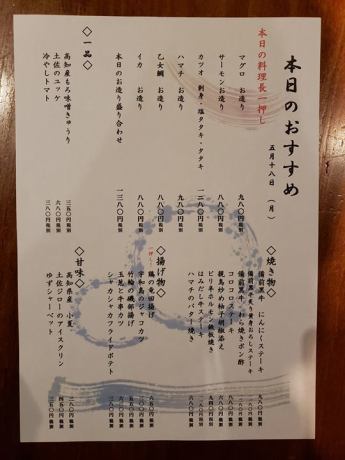 本日のおすすめ
五月十八日 (月)
本日の料理長一押し
マグロ お造り 九八〇円税別
サーモンお造り 八八〇円税別
カツオ 刺身・塩タタキ・タタキ 一二八〇円税別
ハマチ お造り 九八〇円税別
乙女鯛 お造り 八八〇円税別
イカ お造り 八八〇円税別
本日のお造り盛り合わせ 一三八〇円税別
◇一品◇
高知産もろみ味噌きゅうり 三五〇円税別
土佐のユッケ 六八〇円税別
冷やしトマト 三八〇円税別
◇焼き物◇
備前黒牛 にんにくステーキ
備前黒牛 炙り黄身おろしステーキ
備前黒牛 わら焼きポン酢
コロコロステーキ
親鳥炒め柚子胡椒添え
ピリ辛ホルモン鉄板焼き
はみだし牛ステーキ
ハマチのバター焼き
◇揚げ物◇
鶏の竜田揚げ
宇和島のジャコカツ
竹輪の磯部揚げ
玉葱と牛串カツ
シャカシャカフライドポテト
◇甘味◇
高知県産 小夏
土佐ジローのアイスクリン
ゆずシャーベット